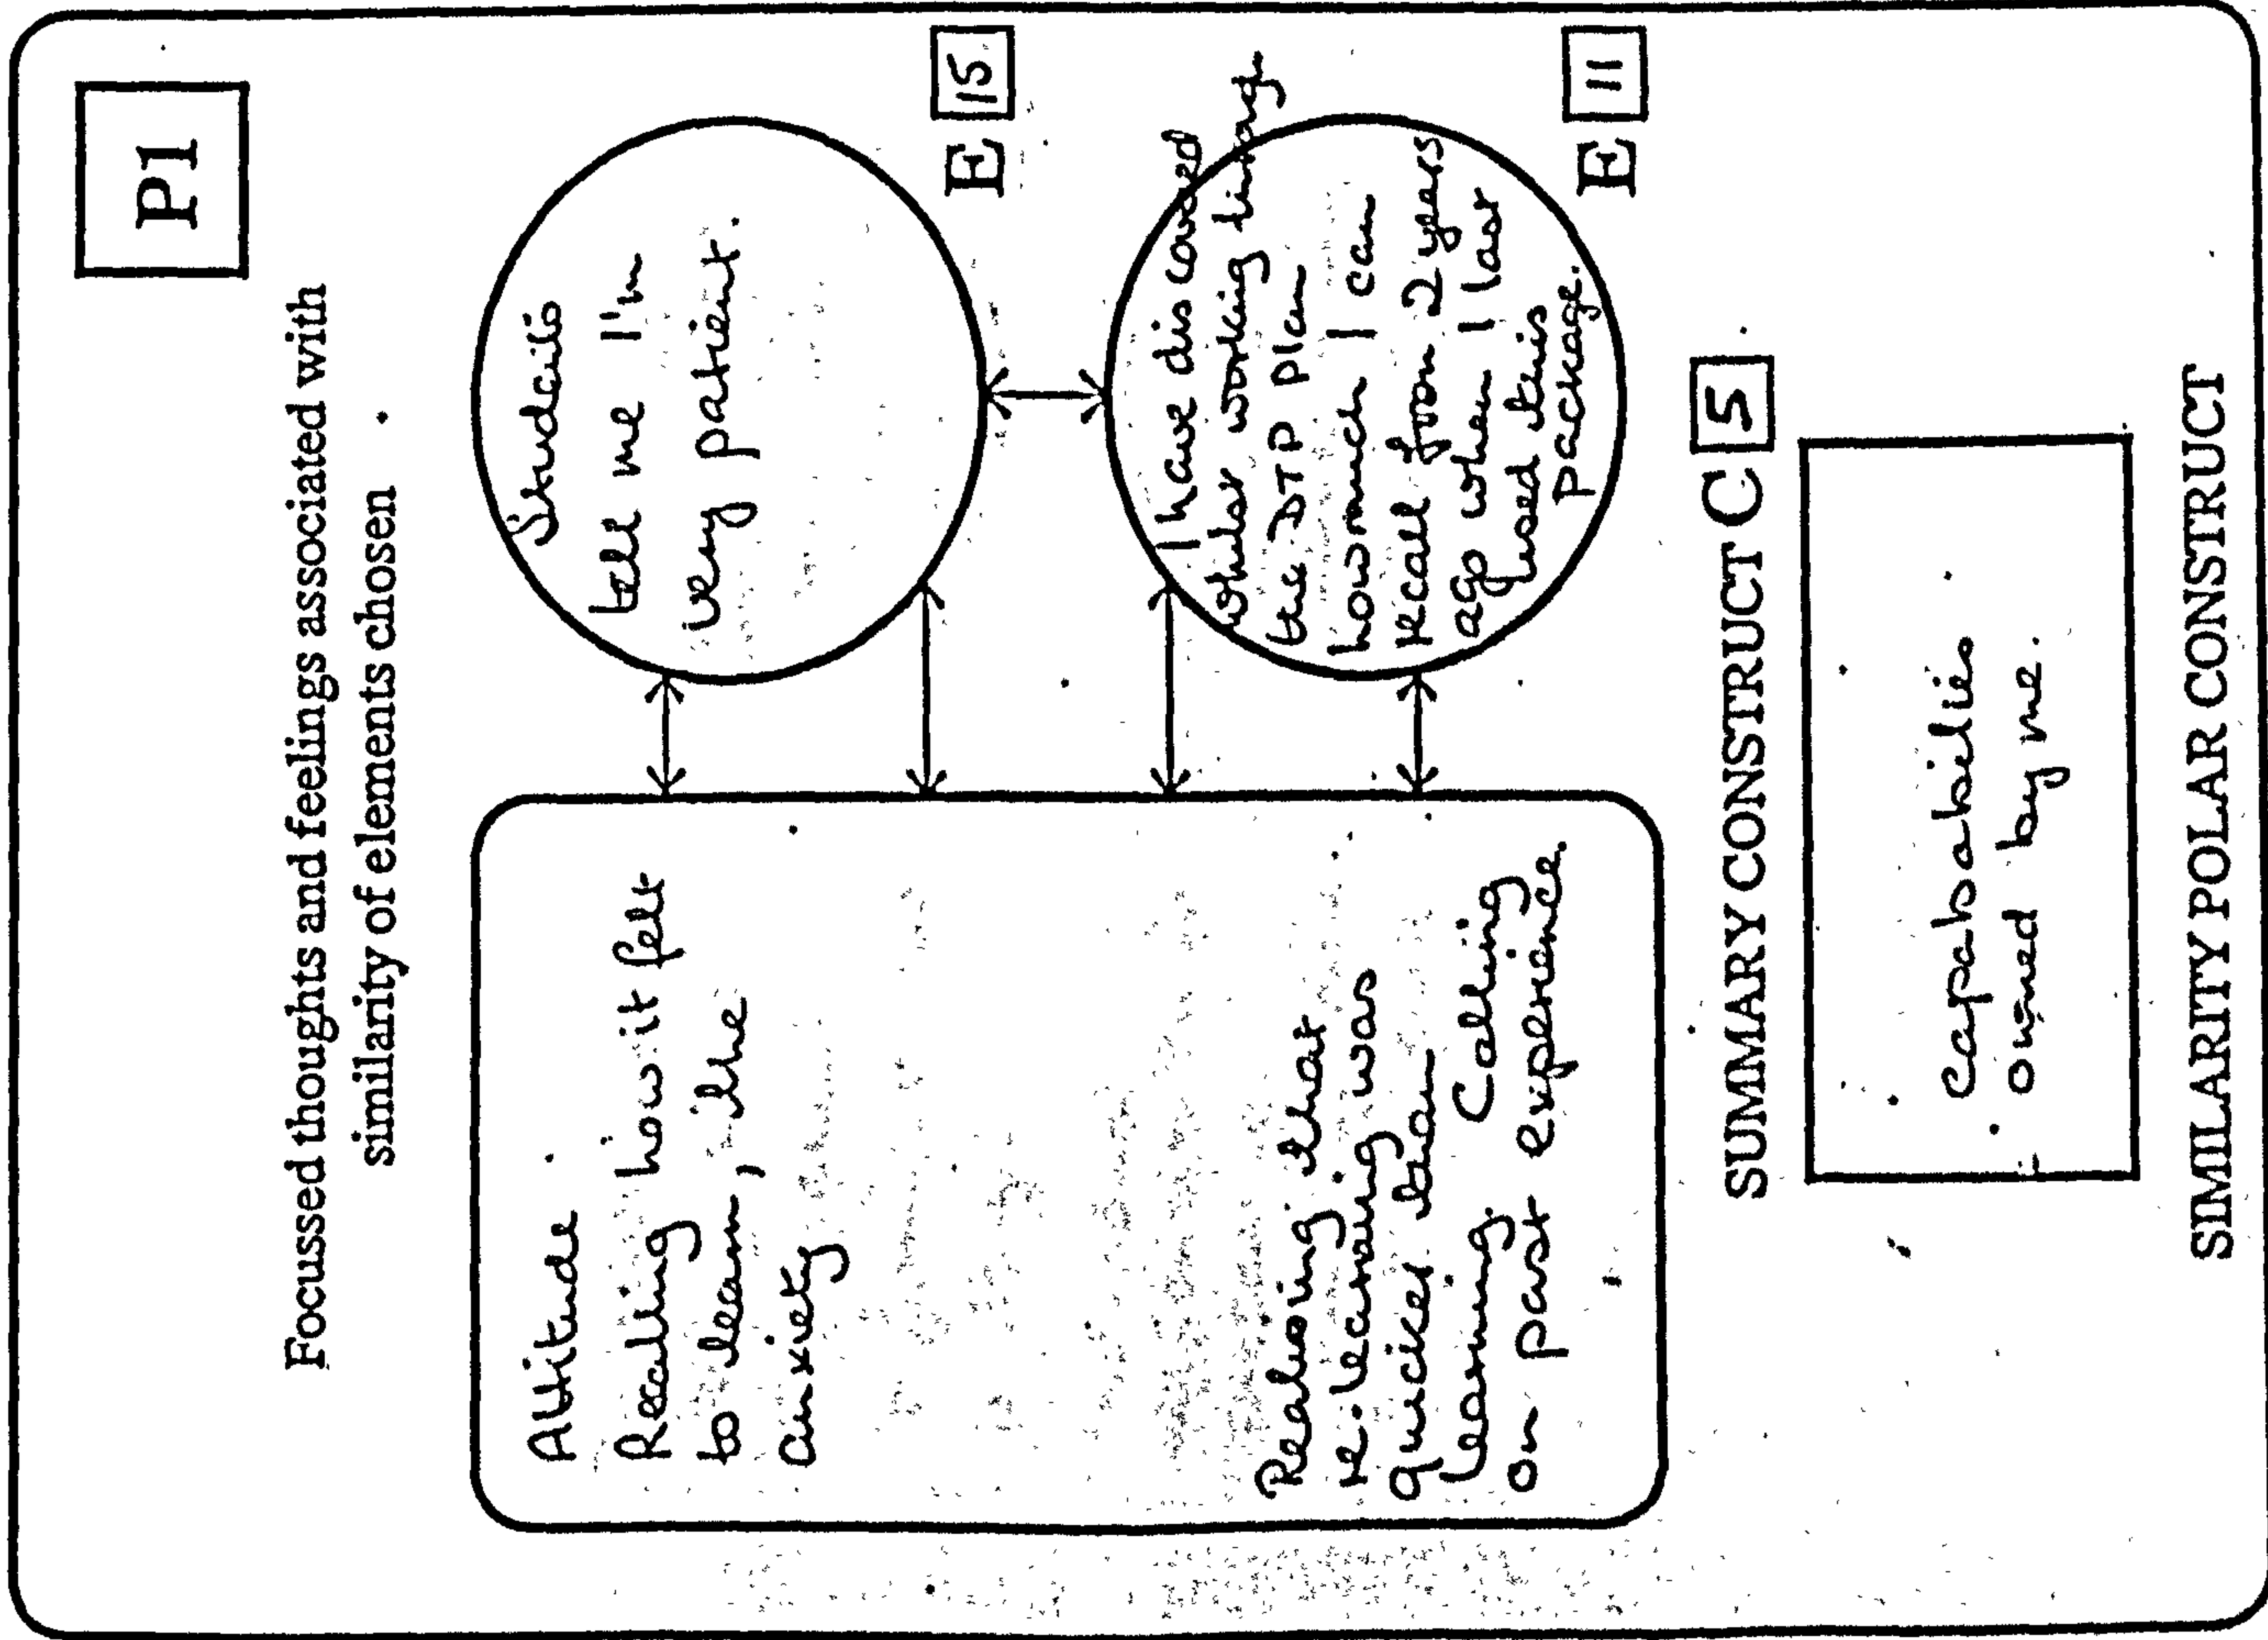 P1
Focussed thoughts and feelings associated with
similarity of elements chosen
Attitude
Recalling how it felt
to learn, the
anxiety
Realising that
re-learning was
quicker than
learning. Calling
on past experience.
Students
tell me I'm
very patient.
E 15
I have discovered
whilst working through
the DTP plan
how much I can
recall from 2 years
ago when I last
used this
package.
E 11
SUMMARY CONSTRUCT C 5
Capabilities
owned by me.
SIMILARITY POLAR CONSTRUCT